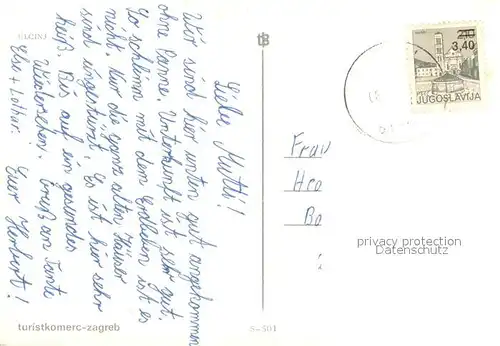 ULCINJ
Liebe Mutti!
Wir sind hier unten gut angekommen
ohne Panne. Unterkunft ist sehr gut.
So schlimm mit dem Erdbeben ist es
nicht. Nur die ganz alten Häuser
sind eingestürzt. Es ist hier sehr
heiß. Bis auf ein gesundes
Wiedersehen. Gruß an Tante
Else + Lothar. Euer Herbert!
turistkomerc-zagreb
S-501
2,10
3,40
JUGOSLAVIJA
Frau
Hro
Bo
privacy protection
Datenschutz